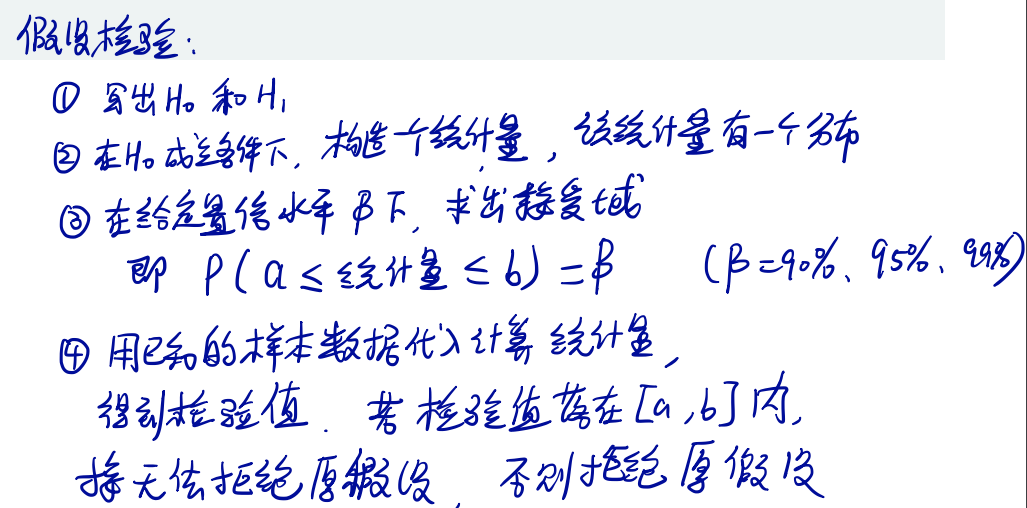 假设检验：
① 写出H₀ 和 H₁
② 在H₀ 成立条件下，构造一个统计量，该统计量有一个分布
③ 在给定置信水平 β 下，求出接受域
即 P(a ≤ 统计量 ≤ b) = β (β=90%、95%、99%)
④ 用已知的样本数据代入计算统计量，
得到检验值．若检验值落在[a,b]内，
无法拒绝原假设，否则拒绝原假设